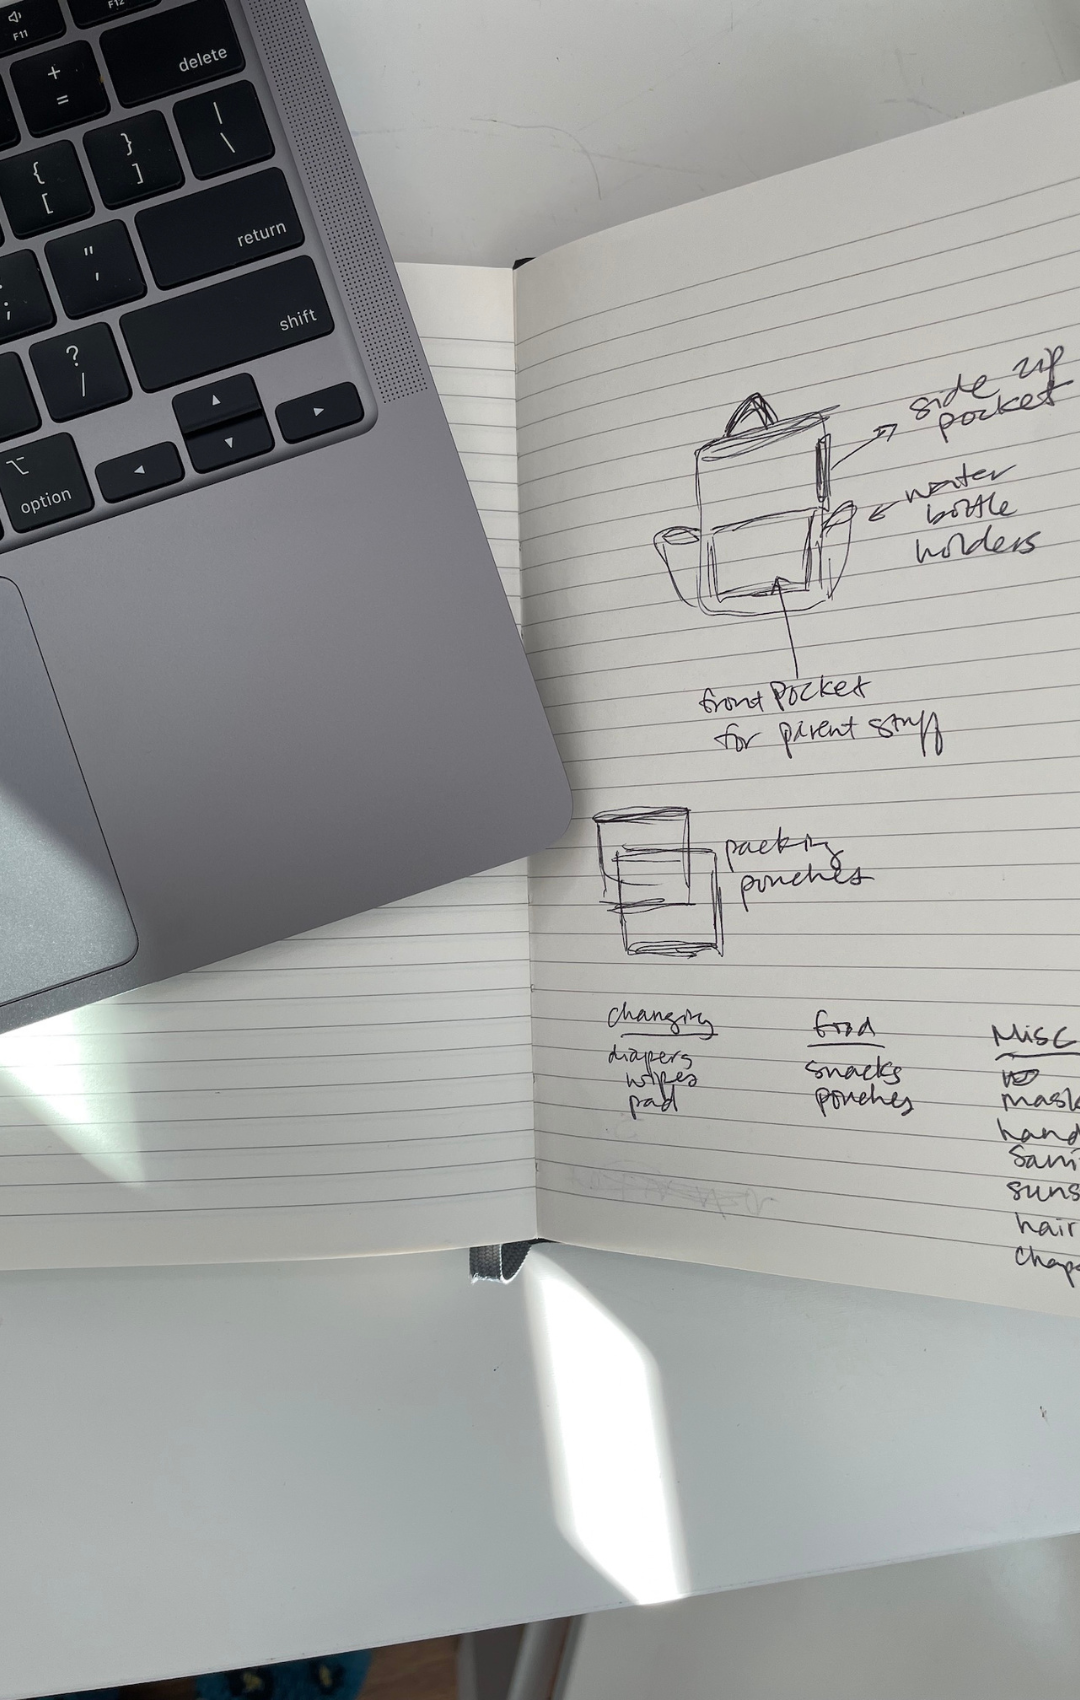 F11
F12
+
=
delete
{
[
}
]
|
\
;
"
'
return
?
/
shift
option
side zip
pocket
water
bottle
holders
front pocket
for parent stuff
packing
pouches
changing
diapers
wipes
pad
food
snacks
pouches
Misc
mask
hand
sani
suns
hair
chap